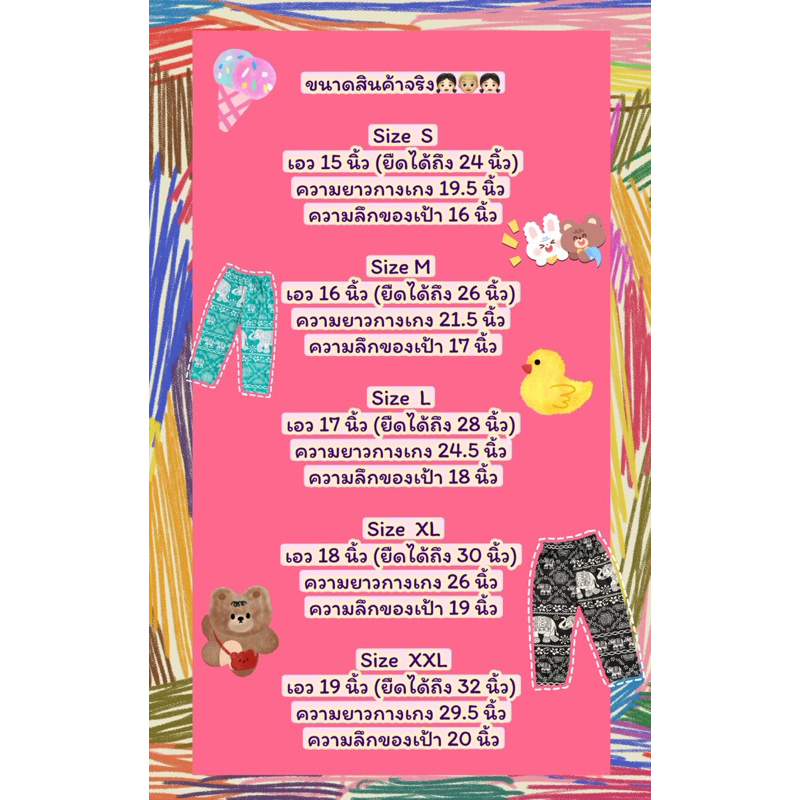 ขนาดสินค้าจริง👧🏻👦🏼👧🏻
Size S
เอว 15 นิ้ว (ยืดได้ถึง 24 นิ้ว)
ความยาวกางเกง 19.5 นิ้ว
ความลึกของเป้า 16 นิ้ว
Size M
เอว 16 นิ้ว (ยืดได้ถึง 26 นิ้ว)
ความยาวกางเกง 21.5 นิ้ว
ความลึกของเป้า 17 นิ้ว
Size L
เอว 17 นิ้ว (ยืดได้ถึง 28 นิ้ว)
ความยาวกางเกง 24.5 นิ้ว
ความลึกของเป้า 18 นิ้ว
Size XL
เอว 18 นิ้ว (ยืดได้ถึง 30 นิ้ว)
ความยาวกางเกง 26 นิ้ว
ความลึกของเป้า 19 นิ้ว
Size XXL
เอว 19 นิ้ว (ยืดได้ถึง 32 นิ้ว)
ความยาวกางเกง 29.5 นิ้ว
ความลึกของเป้า 20 นิ้ว